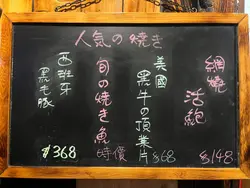 人気の焼き
網燒
活鮑
$148
美國
黑牛の頂業片
$68
旬の焼き魚
時價
西班牙
黑毛豚
$368